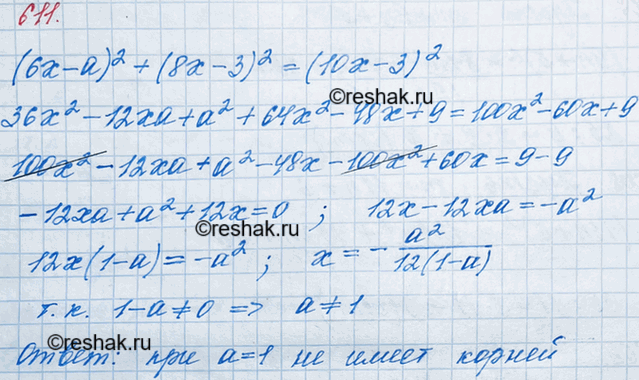 611.
(6x-a)² + (8x-3)² = (10x-3)²
©reshak.ru
36x² - 12xa + a² + 64x² - 48x + 9 = 100x² - 60x + 9
100x² - 12xa + a² - 48x - 100x² + 60x = 9 - 9
-12xa + a² + 12x = 0 ; 12x - 12xa = -a²
©reshak.ru
12x(1-a) = -a² ; x = - a²/12(1-a)
т.к. 1-a ≠ 0 => a ≠ 1
Ответ: при a=1 не имеет корней
©reshak.ru